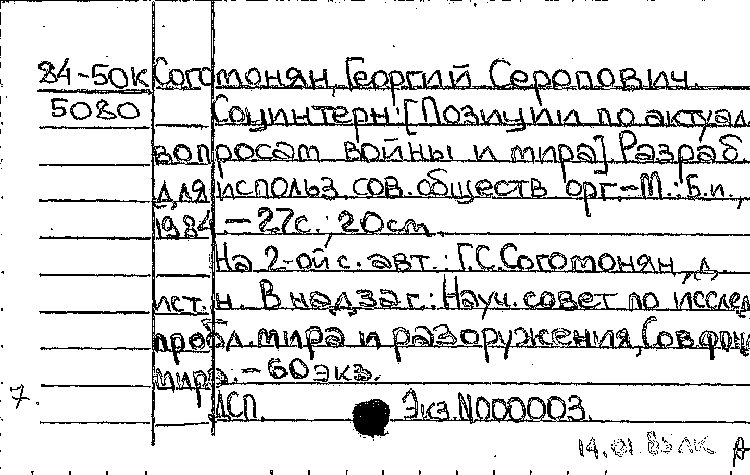 84-50К Согомонян, Георгий Серопович.
5080 Социнтерн: [Позиции по актуал.
вопросам войны и мира]. Разраб.
для использ. сов. обществ. орг.-М.: Б.и.,
1984. - 27с.; 20см.
На 2-ой с. авт.: Г.С.Согомонян, д.
ист. н. В надзаг.: Науч. совет по исслед
пробл. мира и разоружения, Сов. фонд
мира. - 60 экз.
7.
ДСП. Экз.N000003.
14.01.85 ЛК